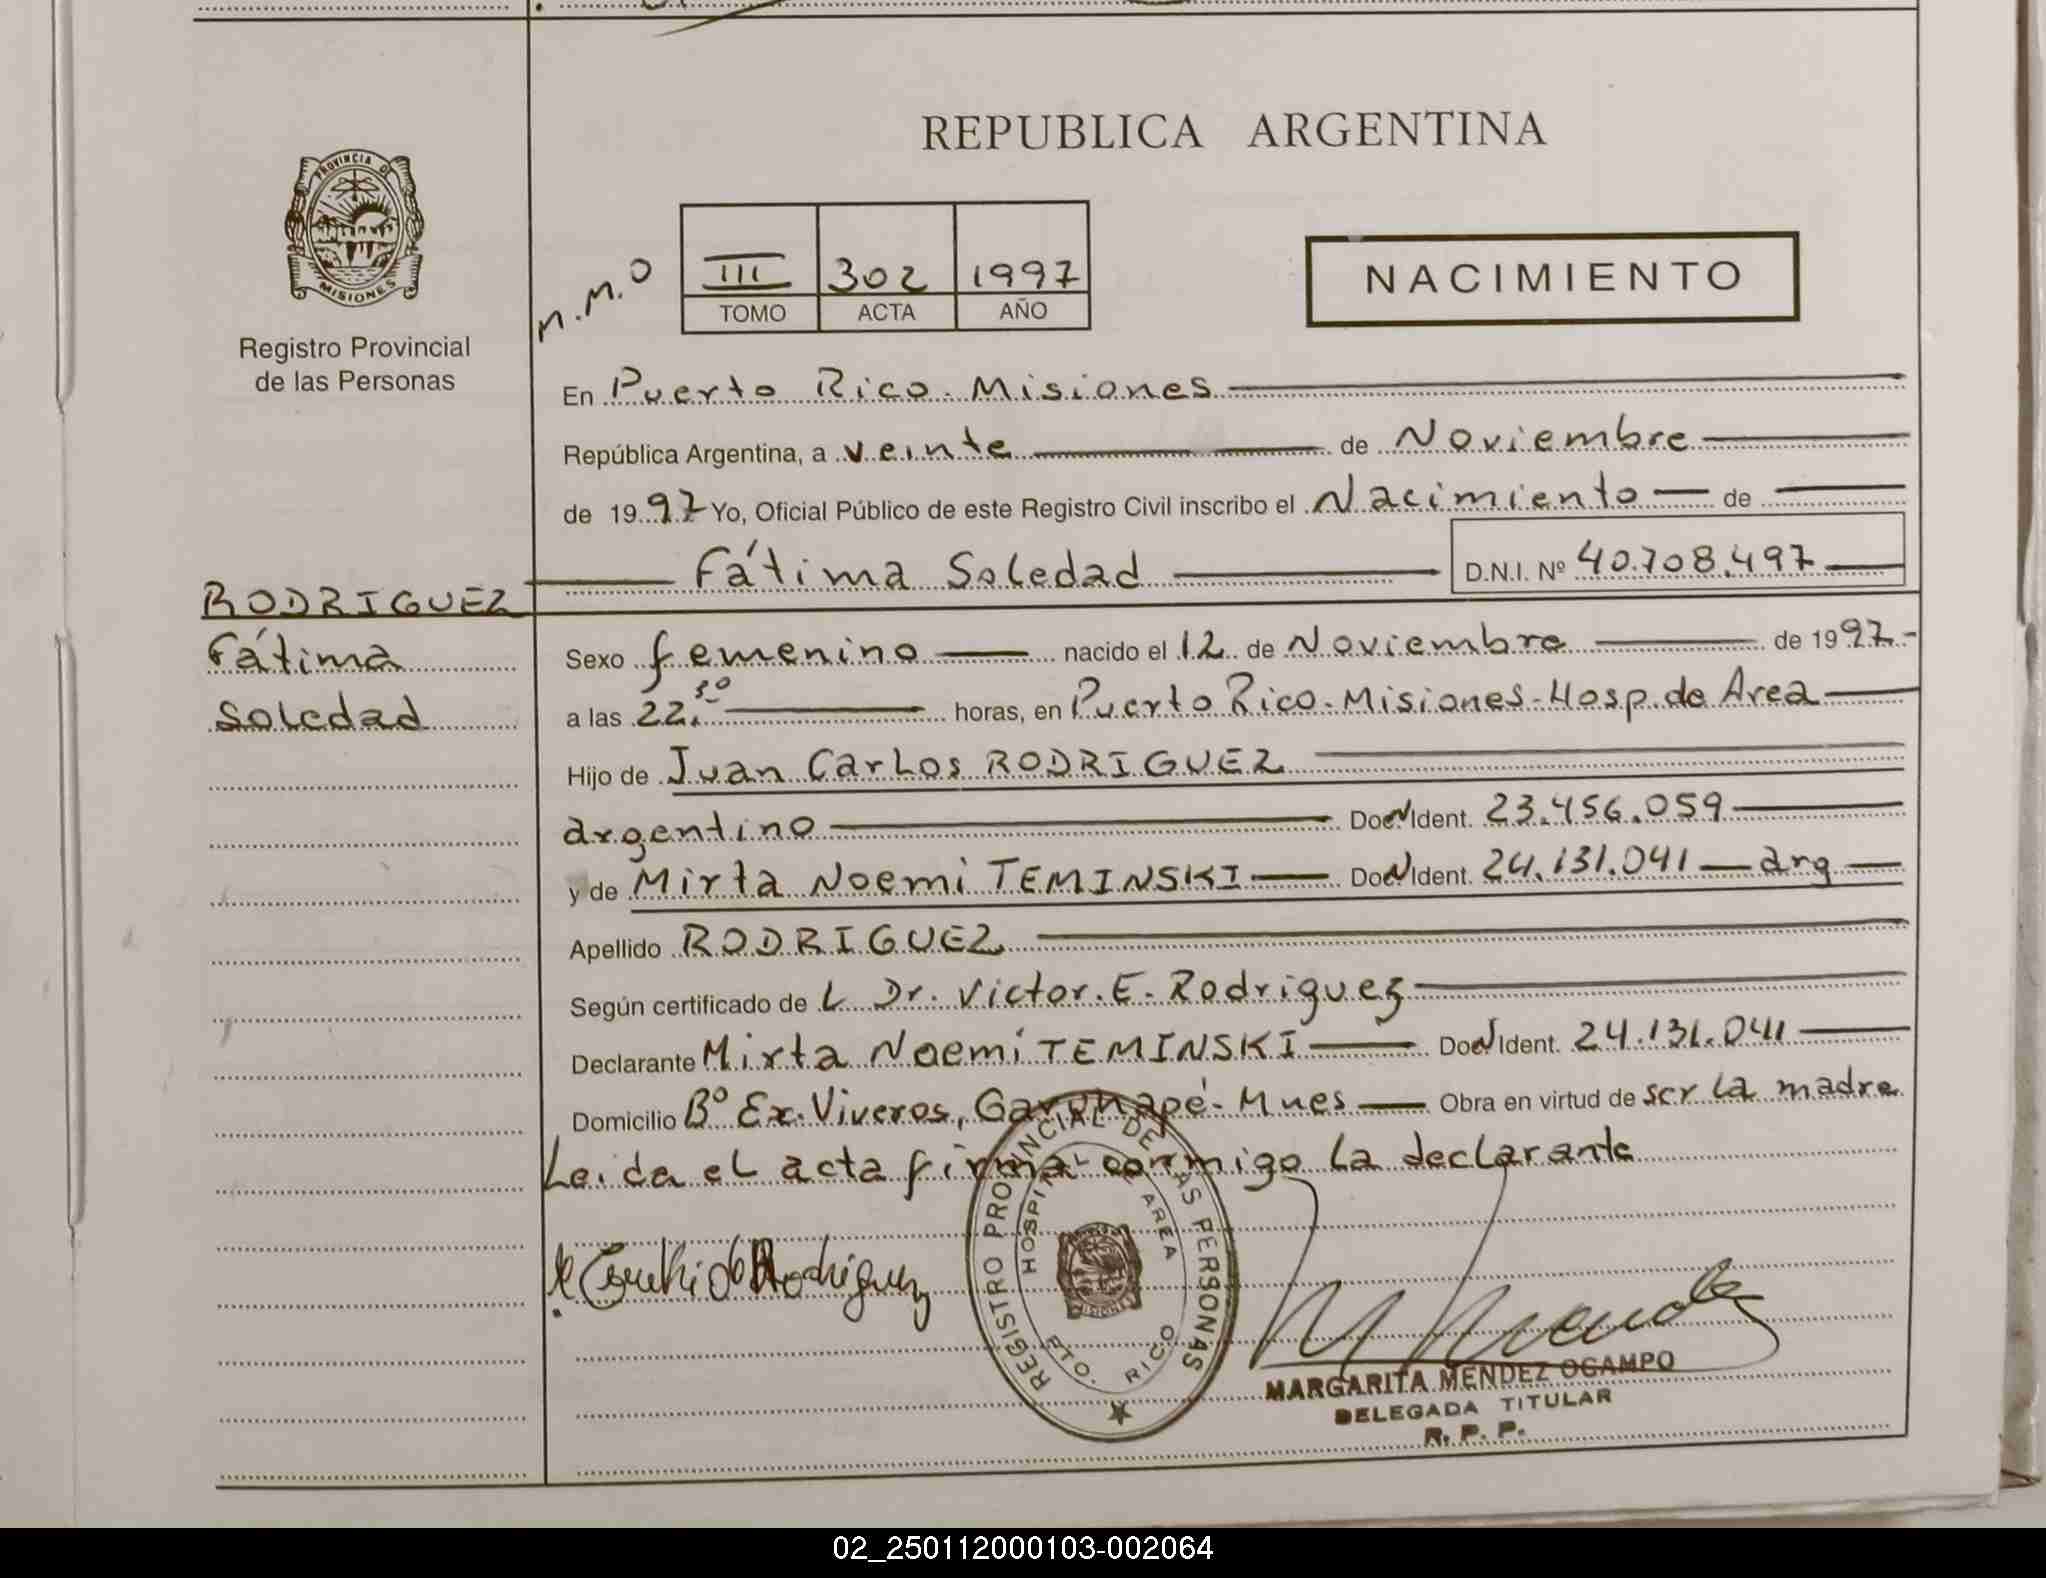 REPUBLICA ARGENTINA
PROVINCIA DE
MISIONES
Registro Provincial
de las Personas
M.M.O
III 302 1997
TOMO ACTA AÑO
NACIMIENTO
En Puerto Rico. Misiones
República Argentina, a veinte de Noviembre
de 1997 Yo, Oficial Público de este Registro Civil inscribo el Nacimiento de
Fátima Soledad D.N.I. Nº 40.708.497
RODRIGUEZ
Fátima
Soledad
Sexo femenino nacido el 12 de Noviembre de 1997.-
a las 22.30 horas, en Puerto Rico. Misiones-Hosp. de Area
Hijo de Juan Carlos RODRIGUEZ
argentino Doc. Ident. 23.456.059
y de Mirta Noemi TEMINSKI Doc. Ident. 24.131.041 arg
Apellido RODRIGUEZ
Según certificado de L Dr. Victor. E. Rodriguez
Declarante Mirta Noemi TEMINSKI Doc. Ident. 24.131.041
Domicilio Bº Ex-Viveros, Garuhapé- Mnes Obra en virtud de ser la madre
Leida el acta firma conmigo la declarante
REGISTRO PROVINCIAL DE LAS PERSONAS
HOSPITAL DE AREA
PTO. RICO
MISIONES
MARGARITA MENDEZ OCAMPO
DELEGADA TITULAR
R. P. P.
02_250112000103-002064